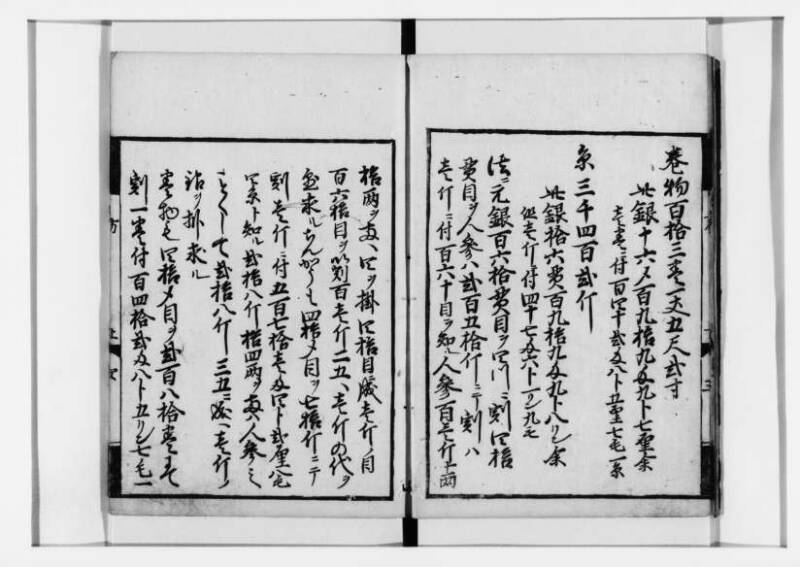 巻物百拾三巻一丈五尺弐寸
此銀十六〆百九拾九匁九卜七厘余
壱巻ニ付百四十弐匁八卜五厘七毛一余
糸三千四百弐斤
此銀拾六貫百九拾九匁九卜八リン余
但壱斤ニ付四十七匁六卜一リン九毛
法ニ元銀百六拾貫目ヲ四ツニ割四拾
貫目ヲ人参ハ弐百五拾斤ニテ割ハ
壱斤ニ付百六十目ヲ知ル人参百壱斤十両
拾両ヲ 四ヲ掛四拾目 壱斤ノ目
百六拾目ヲ以割百壱斤二五、壱斤の代ヲ
求ルちんかうも四拾〆目ヲ七拾斤ニテ
割壱斤ニ付五百七拾壱匁四卜弐厘八毛
ヲ知ル弐拾八斤拾四両ヲ 人参ノ
して弐拾八斤三五ニ 壱斤ノ
ヲ掛求ル
巻物も四拾〆目ヲ弐百八拾巻にて
割一巻ニ付百四拾弐匁八卜五リン七毛一